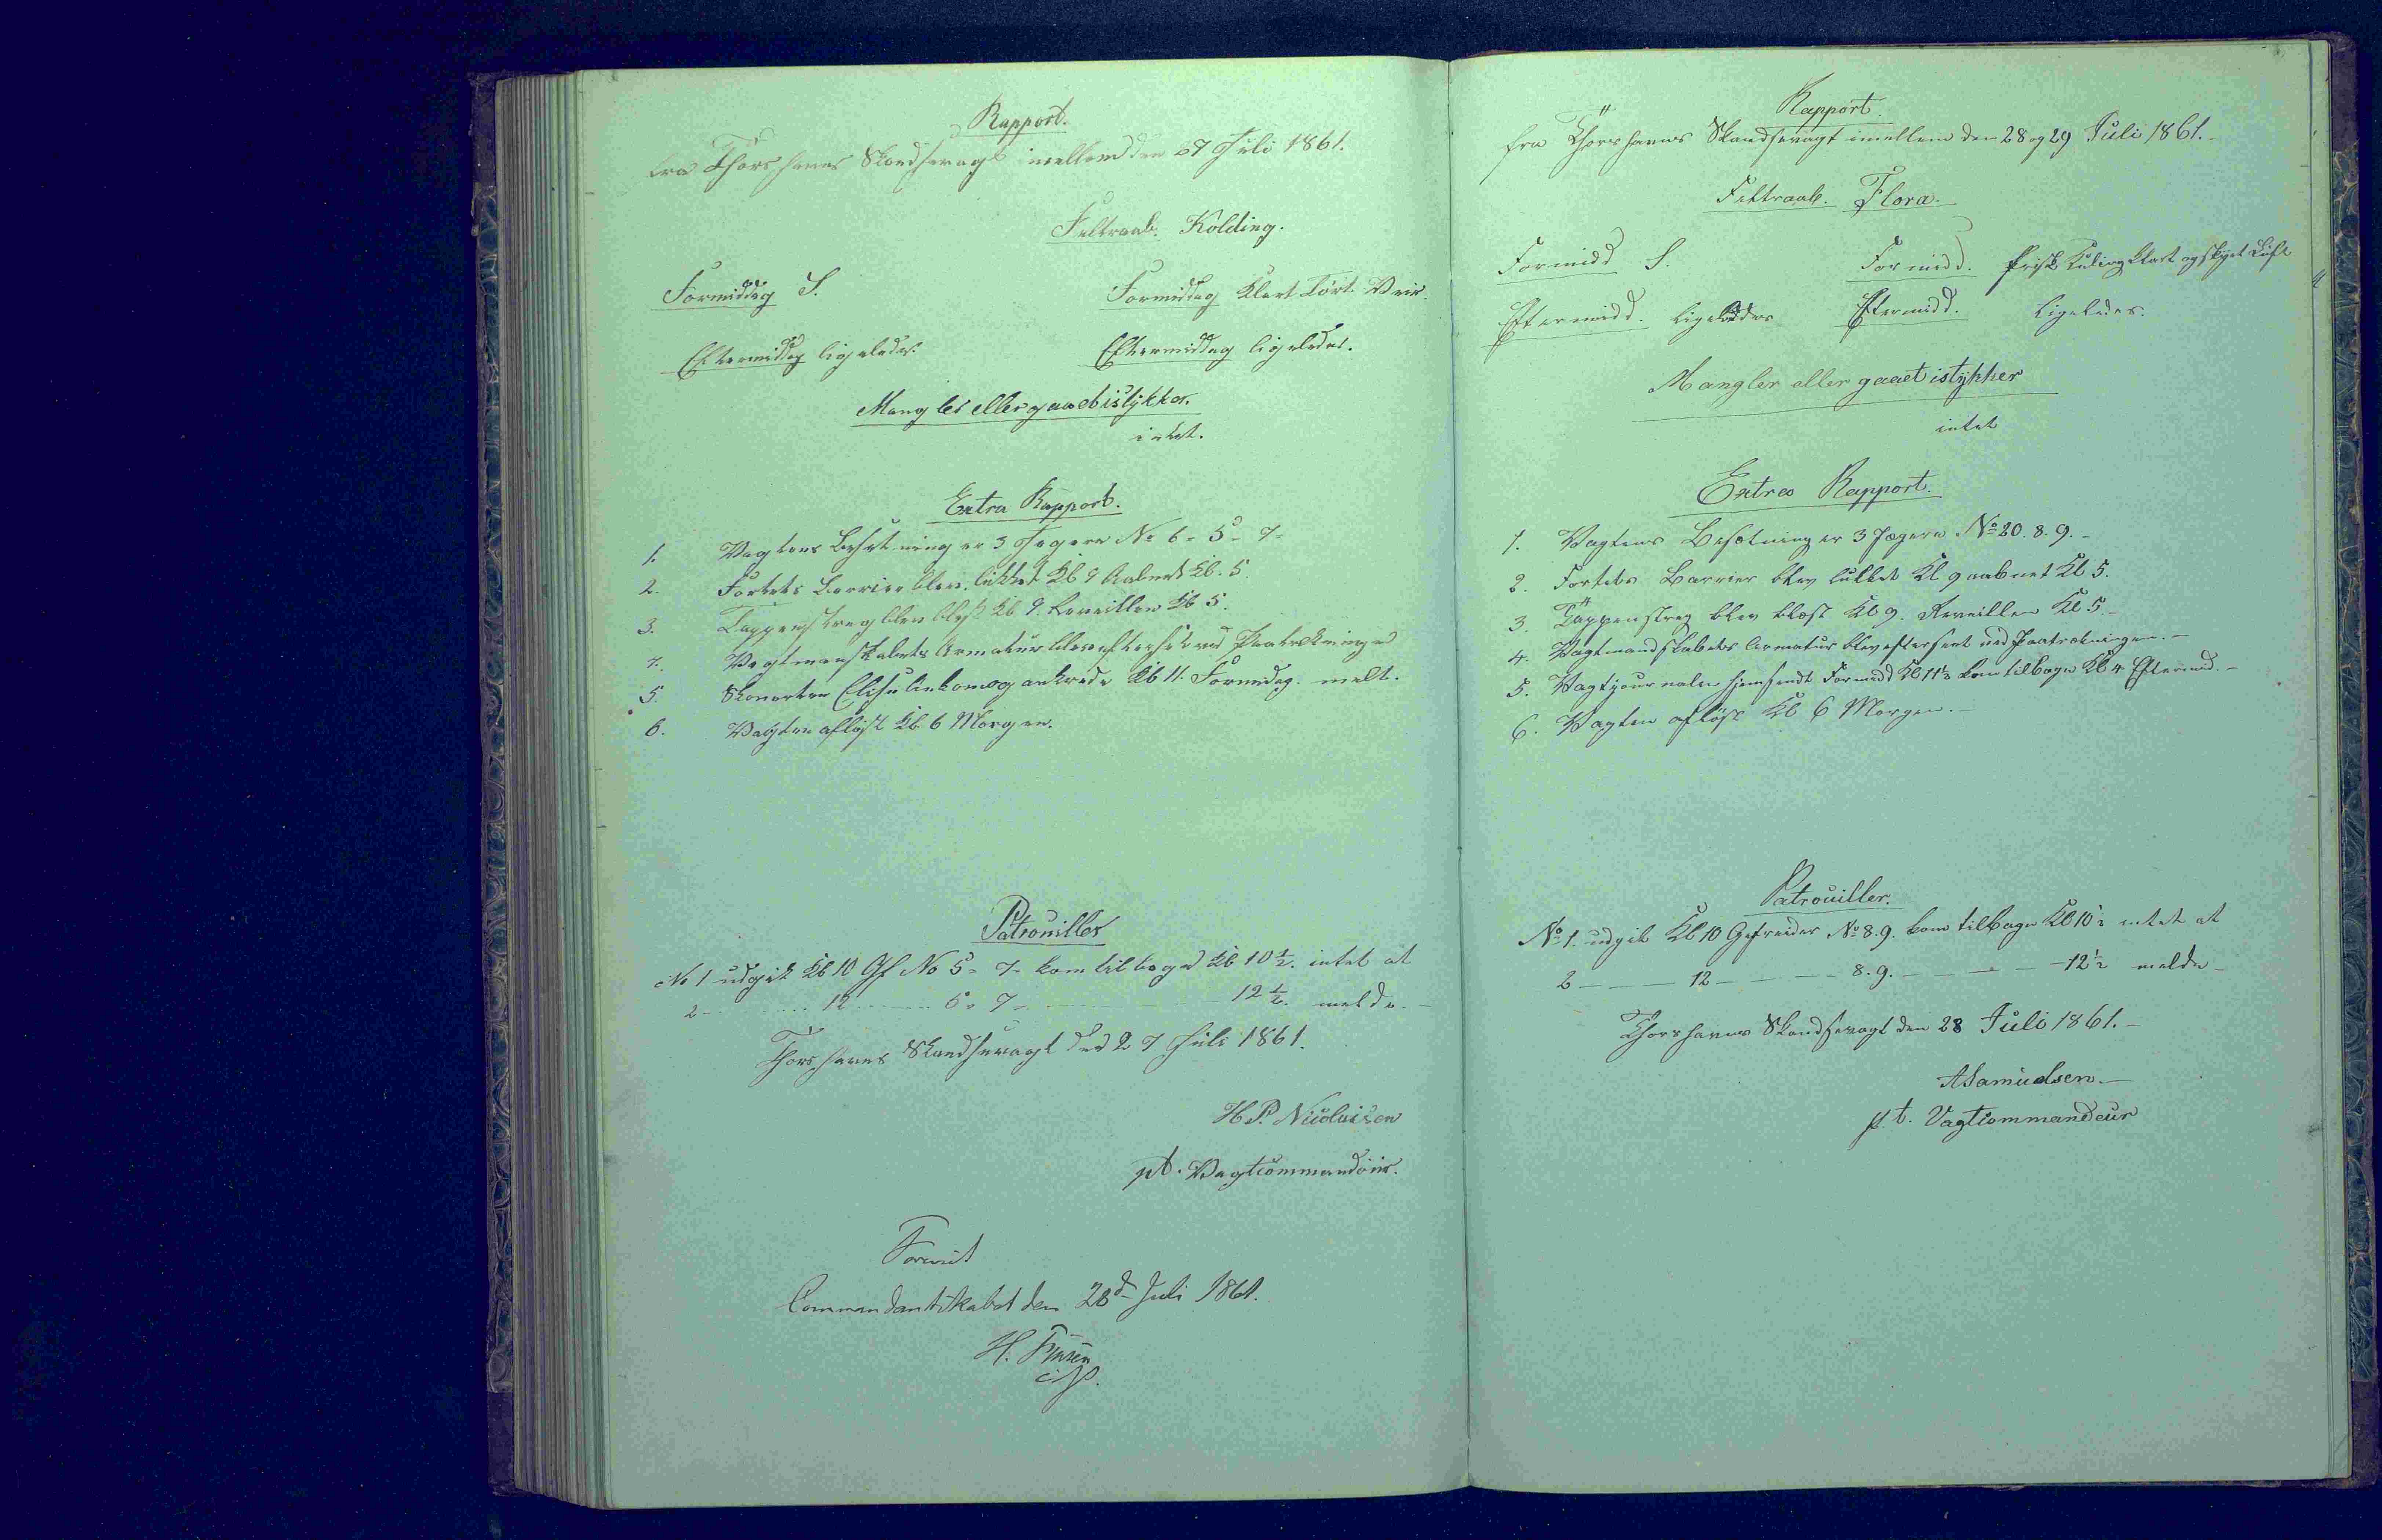 Rapport.
fra Thorshavns Skandsevagt imellem den 27 Juli 1861.
Feltraab. Kolding.
Formiddag S. Formiddag Klart Tört Veir.
Eftermiddag ligeledes. Eftermiddag ligeledes.
Mangler eller gaaet istykker.
intet.
Extra Rapport.
1. Vagtens Besetning er 3 Jegere No 6 = 5 = 7 =
2. Fortets Barrier blev lukket Kl 9 Aabnet Kl. 5.
3. Tappenstreg blev blest Kl 9. Reveillen Kl 5.
4. Vagtmanskabets Armatur blev efterset ved Paatrekningen
5. Skonnerten Elise Ankom og ankrede Kl 11. Formidag. melt.
6. Vagten aflöst Kl. 6 Morgen.
Patrouiller
No 1 udgik Kl 10 Gf No 5 = 7 = kom tilbage Kl 10 1/2. intet at
2 - - - 12 - - - 5 = 7 = - - - 12 1/2. melde. -
Thorshavns Skandsevagt den 27 Juli 1861.
H.P. Nicolaisen
pt. Vagtcommandöur.
Foreviist
Commandantskabet den 28d Juli 1861.
H. Finsen
Rapport.
fra Thorshavns Skandsevagt imellem den 28 og 29 Juli 1861. -
Feltraab. Flora.
Formidd S. Formidd. frisk Kuling klart og skyet Luft
Eftermidd. ligeledes Eftermidd. ligeledes.
Mangler eller gaaet istykker
intet
Extra Rapport.
1. Vagtens Besætning er 3 Jægere No 20. 8. 9. -
2. Fortets Barrier blev lukket Kl 9 aabnet Kl 5.
3. Tappenstreg blev blæst Kl 9. Reveillen Kl 5. -
4. Vagtmandskabets Armatur blev efterseet ved Paatrækningen. -
5. Vagtjournalen hjemsendt Formidd Kl 11 1/2 kom tilbage Kl 4 Eftermid. -
6. Vagten aflöst Kl 6 Morgen. -
Patrouiller.
No 1. udgik Kl 10 Gefreider No 8. 9. kom tilbage Kl 10 1/2 intet at
2 - - - 12 - - - 8. 9. - - - 12 1/2 melde -
Thorshavns Skandsevagt den 28 Juli 1861. -
A Samuelsen. -
p. t. Vagtcommandeur